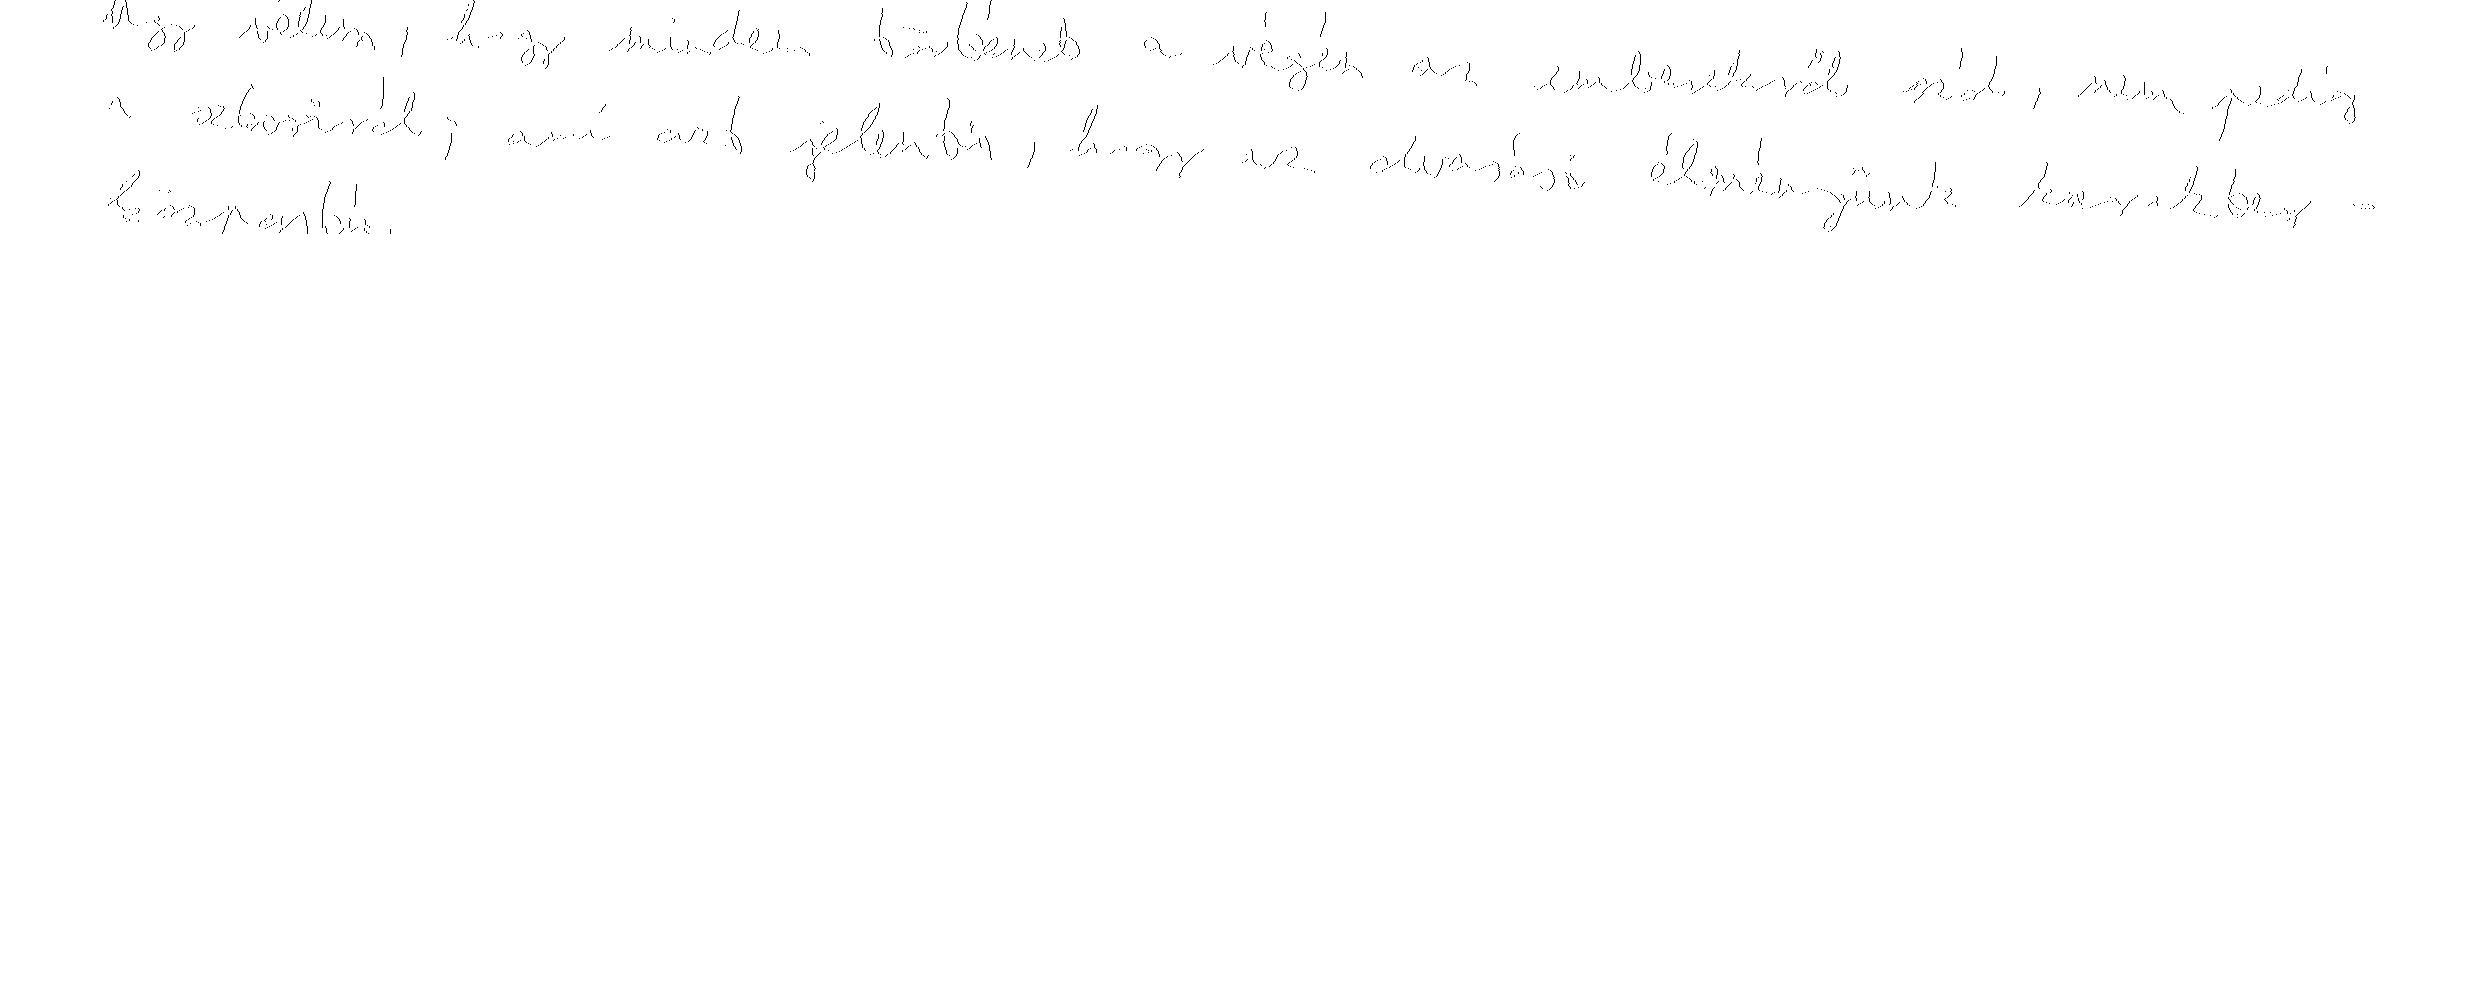 Úgy vélem, hogy minden történet a végén az emberekről szól, nem pedig
a sztoriról, ami azt jelenti, hogy az olvasási élményünk karakter-
központú.